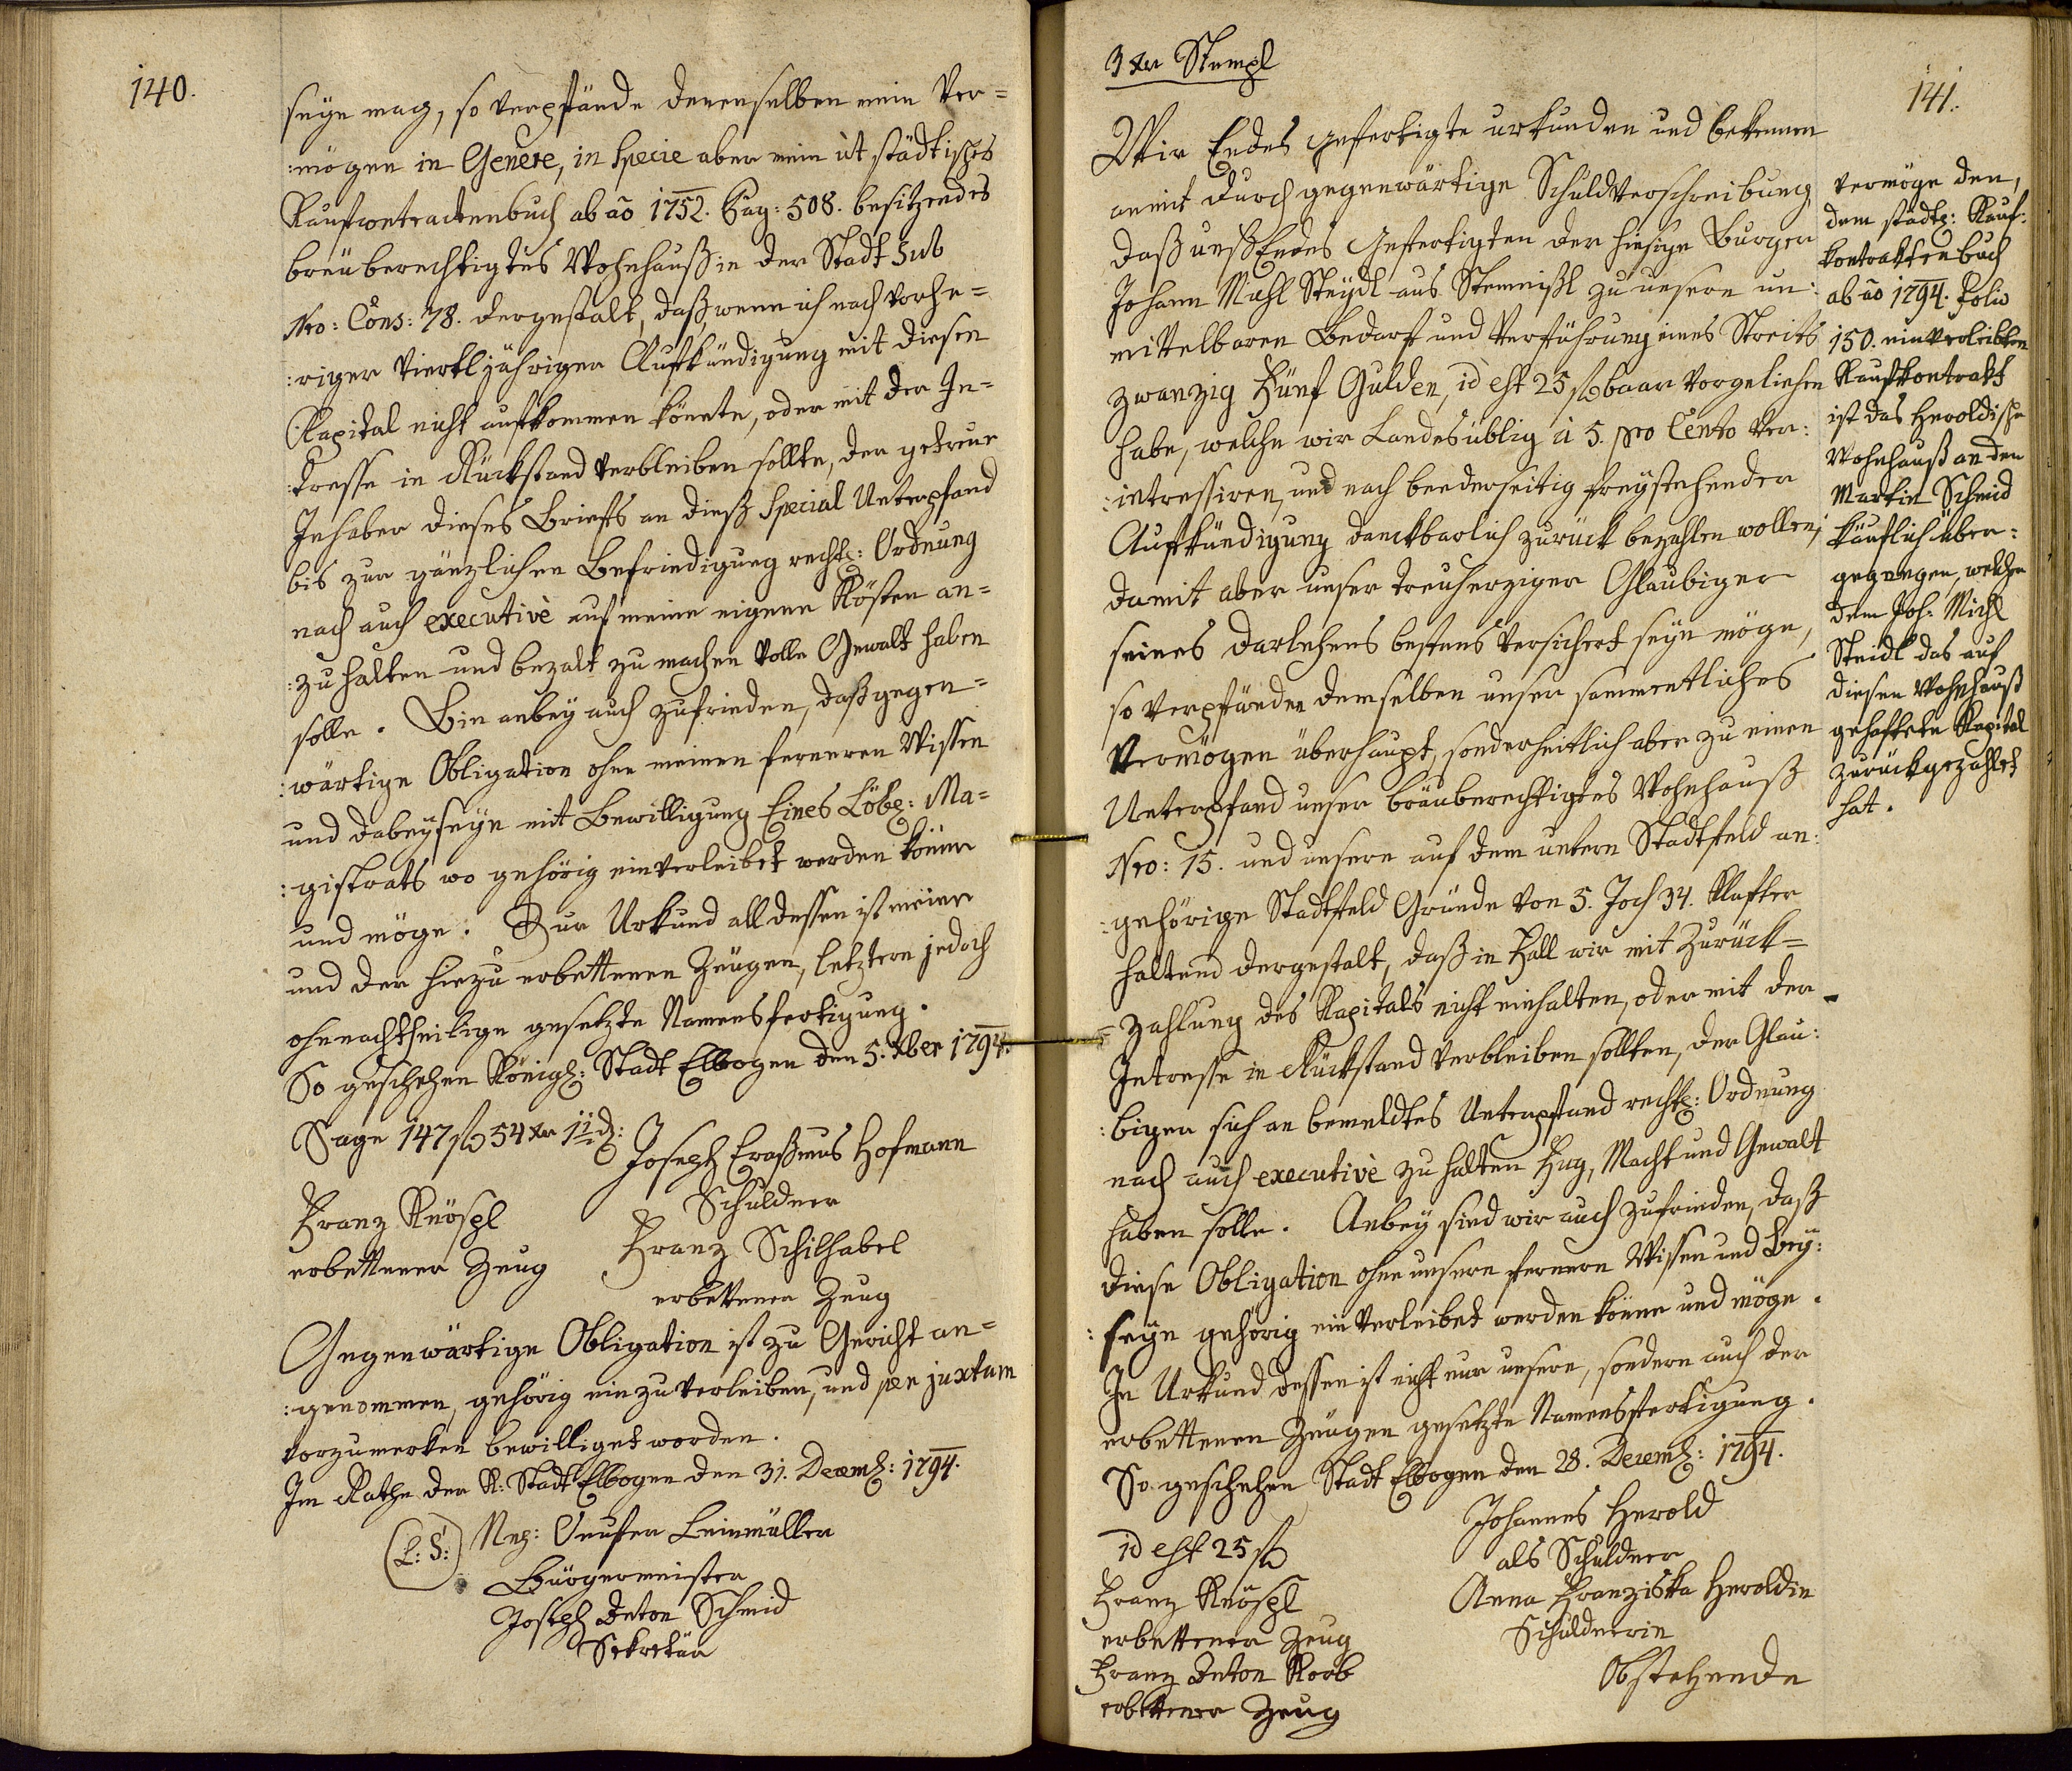 140.
seÿn mag, so verpfände denenselben mein Ver=
:mögen in Genere, in Specie aber mein ùt städtisches
Kaufcontractenbuch ab aõ 1752. Pag: 508. besitzendes
breüberechtigtes Wohnhauß in der Stadt Sub
Nro: Cons: 78. dergestalt, daß wenn ich nach vorhe=
:riger Viertljähriger Aufkündigung mit diesen
Kapital nicht aufkommen könnte, oder mit der In=
:tresse in Rückstand verbleiben sollte, der getreue
Inhaber dieses Briefs an dieß Special Unterpfand
bis zur gänzlichen Befriedigung rechtl: Ordnung
nach auch executivè auf meine eigene Kösten an=
:zuhalten und bezalt zu machen volle Gewalt haben
solle. Bin anbeÿ auch zufrieden, daß gegen=
:wärtige Obligation ohne meinen ferneren Wissen
und dabeÿseÿn mit Bewilligung Eines Löbl: Ma=
:gistrats wo gehörig einverleibet werden könne
und möge. Zur Urkund all dessen ist meine
und der hiezu erbettenen Zeugen, letztern jedoch
ohnnachtheilige gesetzte Namensfertigung.
So geschehen Königl: Stadt Elbogen den 5. Xber 1794.
Sage 147 fl 54 xr 1 d:
Joseph Eraßmus Hofmann
Schuldner
Franz Knöspl
erbettener Zeug
Franz Schilhabel
erbettener Zeug
Gegenwärtige Obligation ist zu Gericht an=
:genommen, gehörig einzuverleiben, und per juxtam
vorzumerken bewilliget worden.
Im Rathe der K: Stadt Elbogen den 31. Decemb: 1794.
(L: S:)
Leinmüller
Bürgermeister
Joseph Anton Schmid
Sekretär
3 xr Stempl
141.
Wir Endes gefertigte urkunden und bekennen
anmit durch gegenwärtige Schuldverschreibung
daß unß Endes Gefertigten der hiesige Burger
Johann Michl Steÿdl aus zu unsern un:
mittelbaren Bedarf und Verführung eines Streits
zwanzig Fünf Gulden, id est 25 fl baar vorgeliehen
habe, welche wir Landesüblig à 5. pro Cento ver:
:intressiren, und nach beederseitig freÿstehender
Aufkündigung danckbarlich zurück bezahlen wollen;
damit aber unser treuherziger Glaubiger
seines Darlehens bestens versichert seÿn möge,
so verpfänden demselben unser sammentliches
Vermögen überhaupt, sonderheitlich aber zu einen
Unterpfand unser bräuberechtigtes Wohnhauß
Nro: 15. und unsere auf dem untern Stadtfeld an:
:gehörige Stadtfeld Gründe von 5. Joch 34. Klafter
haltend dergestalt, daß in Fall wir mit Zurück=
=zahlung des Kapitals nicht einhalten, oder mit der
Intresse in Rückstand verbleiben sollten, der Glau:
:biger sich an bemeldtes Unterpfand rechtl: Ordnung
nach auch executivè zu halten Fug, Macht und Gewalt
haben solle. Anbeÿ sind wir auch zufrieden, daß
diese Obligation ohne unsern fernern Wissen und Beÿ:
:seÿn gehörig einverleibet werden könne und möge.
In Urkund dessen ist nicht nur unsere, sondern auch der
erbettenen Zeugen gesetzte Namensfertigung.
So geschehen Stadt Elbogen den 28. Decemb: 1794.
id est 25 fl
Johannes Herold
als Schuldner
Franz Knöspl
erbettener Zeug
Anna Franziska Heroldin
Schuldnerin
Franz Anton Korb
erbettener Zeug
Obstehende
vermöge den,
dem städtl: Kauf:
kontraktenbuch
ab aõ 1794. Folio
150. einverleibten
Kaufkontrakt
ist das Heroldische
Wohnhauß an den
Martin Schmid
käuflich über:
gegangen, welcher
dem Joh: Michl
Steidl das auf
diesen Wohnhauß
gehaftete Kapital
zurückgezahlet
hat.